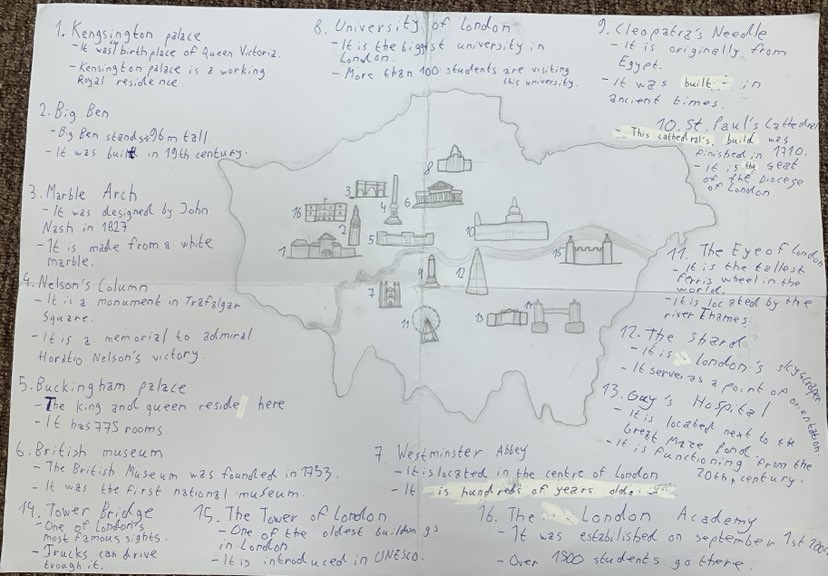 1. Kengsington palace
- It was birthplace of Queen Victoria.
- Kensington palace is a working
Royal residence
2. Big Ben
- Big Ben stands 96m tall.
- It was built in 19th century.
3. Marble Arch
- It was designed by John
Nash in 1827.
- It is made from a white
marble.
4. Nelson's Column
- It is a monument in Trafalgar
Square.
- It is a memorial to admiral
Horatio Nelson's victory.
5. Buckingham palace
- The king and queen reside here
- It has 775 rooms.
6. British museum
- The British Museum was founded in 1753.
- It was the first national museum.
7. Westminster Abbey
- It is located in the centre of London
- It is hundreds of years old.
8. University of London
- It is the biggest university in
London.
- More than 100 students are visiting
this university.
9. Cleopatra's Needle
- It is originally from
Egypt.
- It was built in
ancient times.
10. St Paul's Cathedral
- This cathedral's build was
finished in 1710.
- It is the seat
of the Diocese
of London
11. The Eye of London
- It is the tallest
ferris wheel in the
world.
- It is located by the
river Thames
12. The Shard
- It is London's skyscraper
- It serves as a point of orientation
13. Guy's Hospital
- It is located next to the
Great Maze Pond
- It is functioning from the
20th century.
14. Tower Bridge
- One of London's
most famous sights.
- Trucks can drive
trough it.
15. The Tower of London
- One of the oldest buildings
in London
- It is introduced in UNESCO.
16. The London Academy
- It was estabilished on september 1st
- Over 1500 students go there.
8
3
4
6
16
2
5
1
10
15
9
12
7
11
13
14